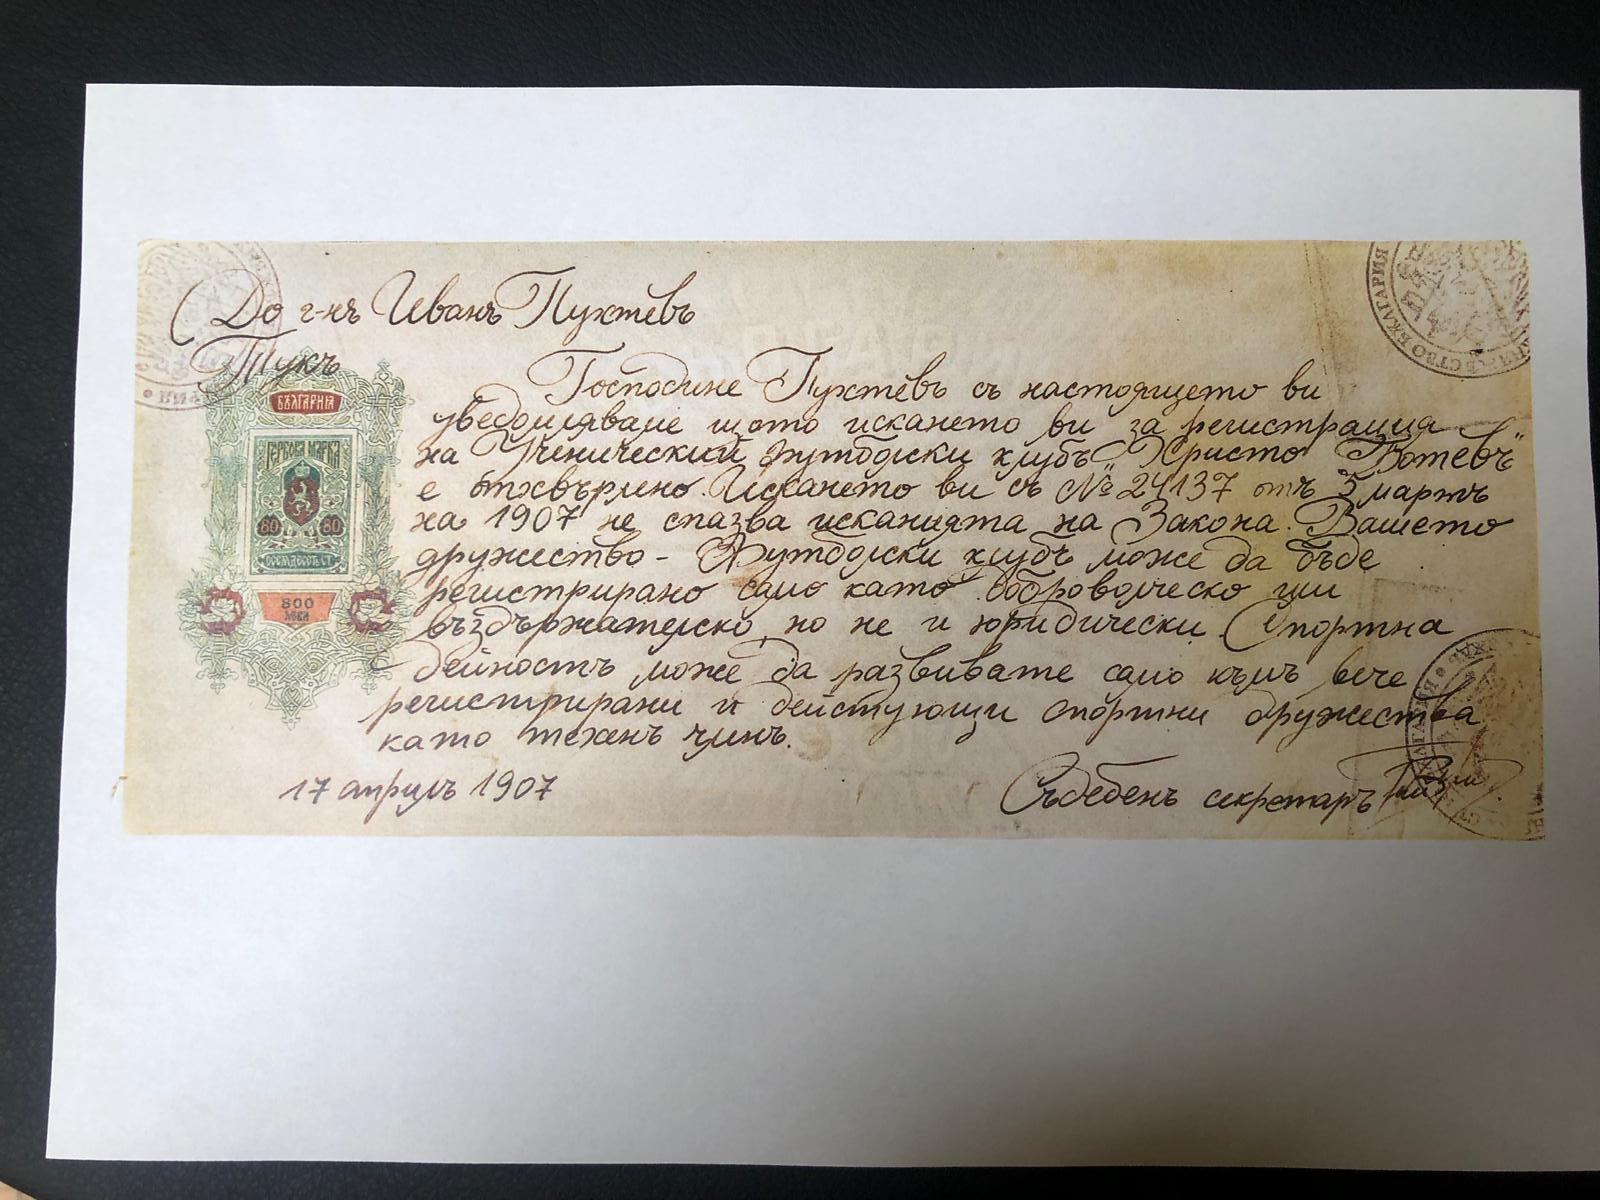 До г-нъ Иванъ Пухтевъ
Тукъ
Господине Пухтевъ съ настоящето ви
уведомяваме щото искането ви за регистрация
на Ученический футболски клубъ "Христо Ботевъ"
е отхвърлено. Искането ви съ № 24137 отъ 5 мартъ
на 1907 не спазва исканията на Закона. Вашето
дружество - Футболски клубъ може да бъде
регистрирано само като доброволческо или
въздържателско, но не и юридически. Спортна
дейность може да развивате само към вече
регистрирани и действующи спортни дружества
като техенъ членъ.
17 априлъ 1907
Съдебенъ секретаръ
БЪЛГАРИЯ
ГЕРБОВА МАРКА
80 80
800
ЛЕВА